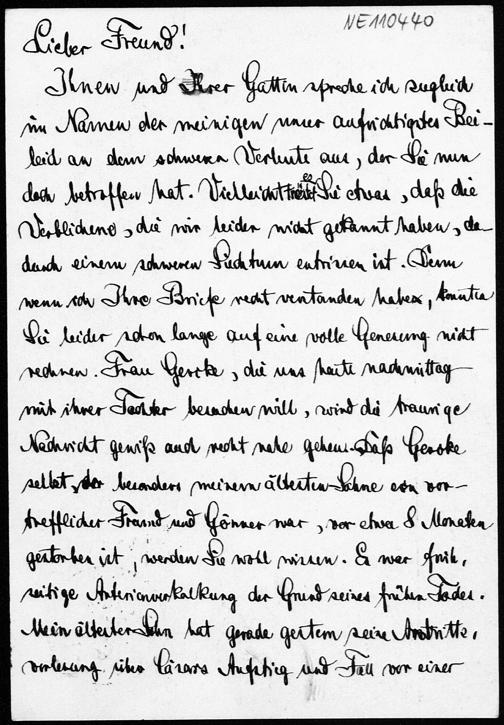 NE110440
Lieber Freund!
Ihnen und Ihrer Gattin spreche ich zugleich
im Namen der meinigen unser aufrichtigstes Bei-
leid an dem schweren Verluste aus, der Sie nun
doch betroffen hat. Vielleicht tröstet es Sie etwas, daß die
Verblichene, die wir leider nicht gekannt haben, da-
durch einem schweren Siechtum entrissen ist. Denn
wenn ich Ihre Briefe recht verstanden habe, konnten
Sie leider schon lange auf eine volle Genesung nicht
rechnen. Frau Gercke, die uns heute nachmittag
mit ihrer Tochter besuchen will, wird die traurige
Nachricht gewiß auch recht nahe gehen. Daß Gercke
selbst, der besonders meinem ältesten Sohne ein vor-
trefflicher Freund und Gönner war, vor etwa 8 Monaten
gestorben ist, werden Sie wohl wissen. Es war früh-
zeitige Arterienverkalkung der Grund seines frühen Todes.
Mein ältester Sohn hat gerade gestern seine Antritts-
vorlesung über Cäsars Aufstieg und Fall vor einer